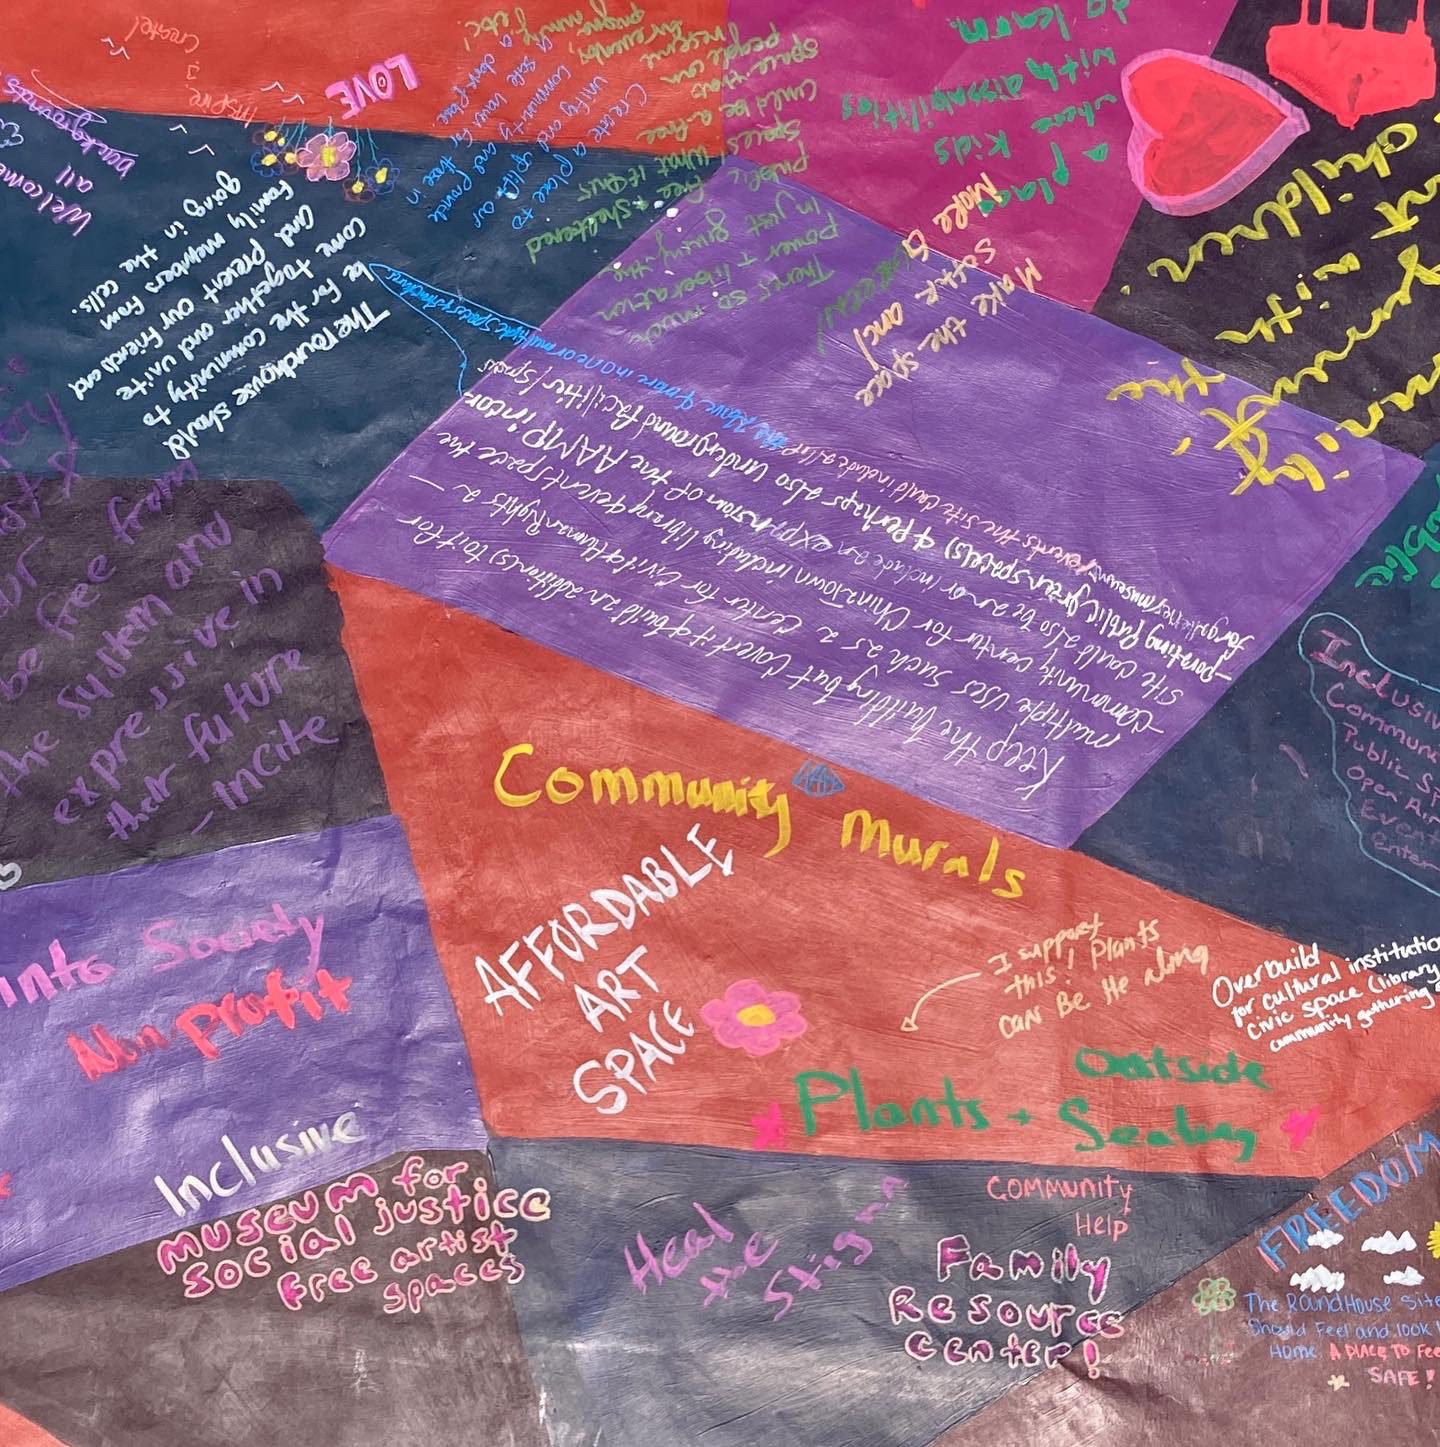 Create!
:)
Inspire
LOVE
Welcome
all
backgrounds
The Roundhouse should
be for the community to
come together and unite
and prevent our friends and
family members from
going in the cells.
Create a place to
unify and uplift our
community and provide
a safe haven for those in
There's so much
power + liberation
in just giving the
public free + sheltered
spaces. What if this
could be a free
space thas
people can
reserve
for events,
programming etc!
A place
where kids
with dissabilities
learn.
Make the space
softer and
Make a
GREEN!
children
with
the
be free from
the system and
expressive in
their future
— incite
Keep the building but covert it & build an addition(s) to it for
multiple uses such as a Center for Civil & Human Rights a —
community center for Chinatown including library & event space the
site could also be an or include an exppansion of the AAMP incor-
-porating public green space(s) & perhaps also underground facilities/spaces
for gatherings museum events the site could include all of
the above & more in one or multiple spaces & structures
Public
Inclusive
Open Air
Community Murals
AFFORDABLE
ART
SPACE
I support
this! Plants
can Be Healing
Overbuild
for cultural institution
civic space (library
community gathering
Plants + Outside
Seating
into Society
Non profit
Inclusive
museum for
social justice
free artist
spaces
Heal
the
Stigma
COMMUNITY
HELP
Family
Resource
Center!
FREEDOM
The RoundHouse Site
Should Feel and look
Home. A PLACE TO
SAFE!